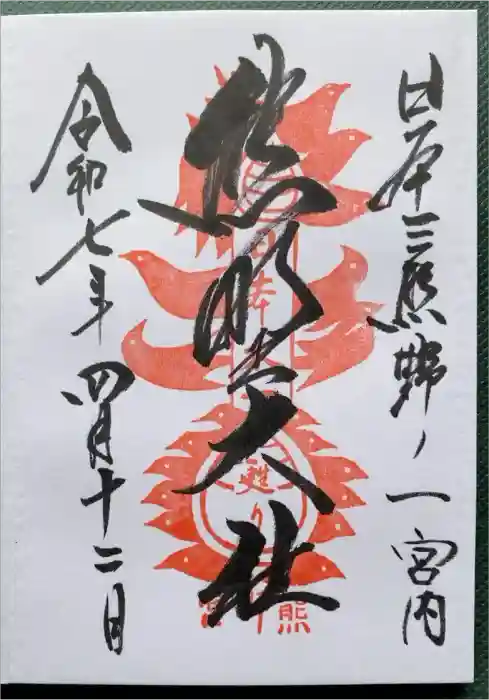 日本三熊野ノ一宮内
熊野大社
令和七年四月十二日
甦り
熊